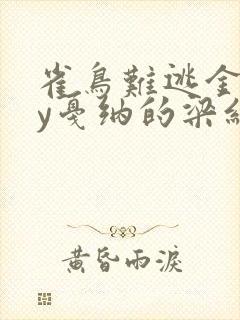 雀鳥難逃金
y戛纳的梁纟
黄昏雨淚